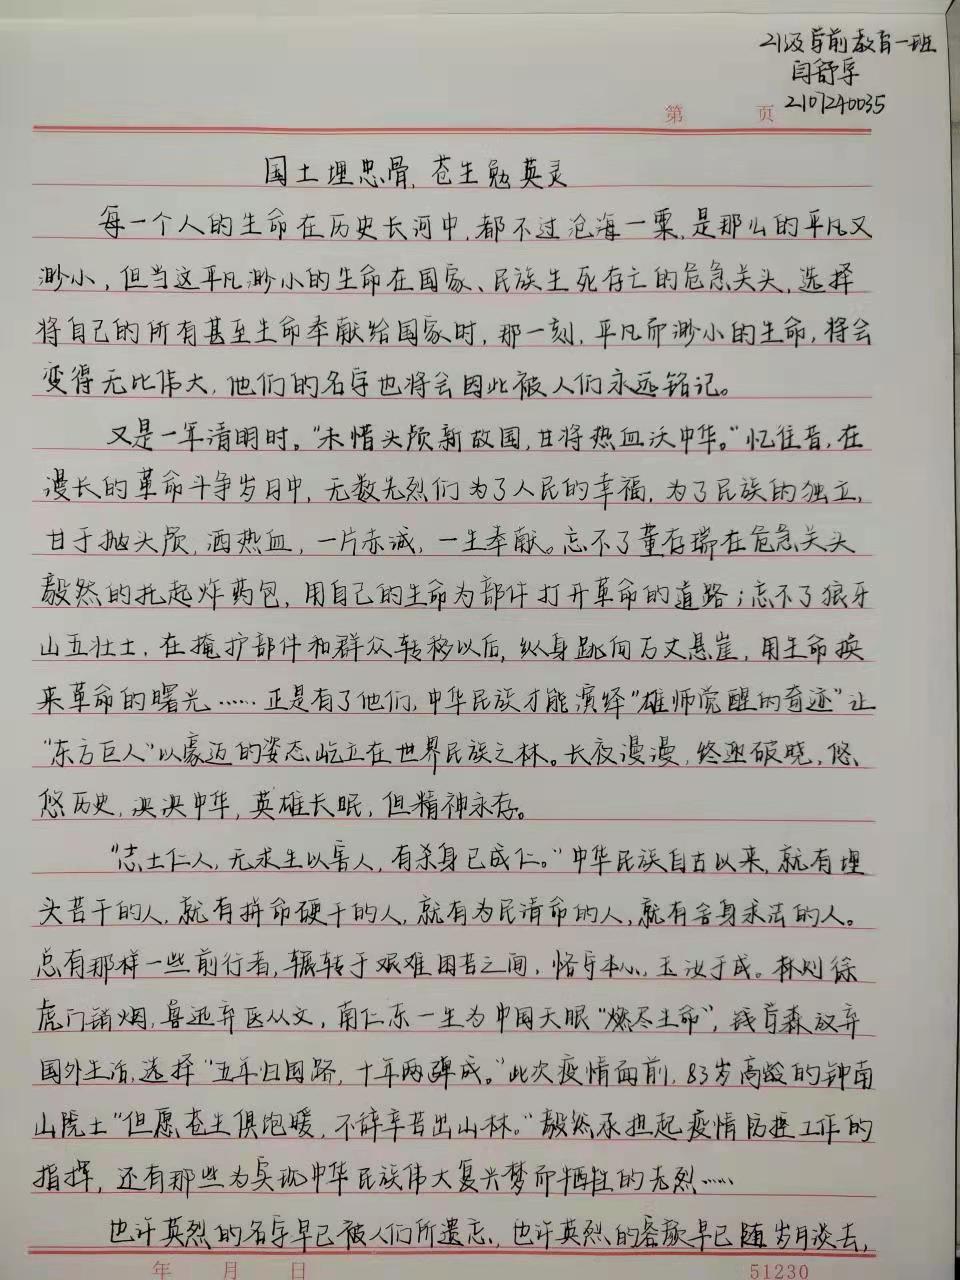 21级学前教育一班
闫舒孚
2107240035
第 页
国土埋忠骨,苍生勉英灵
每一个人的生命在历史长河中,都不过沧海一粟,是那么的平凡又
渺小,但当这平凡渺小的生命在国家、民族生死存亡的危急关头,选择
将自己的所有甚至生命奉献给国家时,那一刻,平凡而渺小的生命,将会
变得无比伟大,他们的名字也将会因此被人们永远铭记。
又是一年清明时。“未惜头颅新故国,甘将热血沃中华。”忆往昔,在
漫长的革命斗争岁月中,无数先烈们为了人民的幸福,为了民族的独立,
甘于抛头颅,洒热血,一片赤诚,一生奉献。忘不了董存瑞在危急关头
毅然的托起炸药包,用自己的生命为部件打开革命的道路;忘不了狼牙
山五壮士,在掩护部件和群众转移以后,纵身跳向万丈悬崖,用生命换
来革命的曙光……正是有了他们,中华民族才能演绎“雄师觉醒的奇迹”让
“东方巨人”以豪迈的姿态屹立在世界民族之林。长夜漫漫,终迎破晓,悠
悠历史,泱泱中华,英雄长眠,但精神永存。
“志士仁人,无求生以害人,有杀身已成仁。”中华民族自古以来,就有埋
头苦干的人,就有拼命硬干的人,就有为民请命的人,就有舍身求法的人。
总有那样一些前行者,辗转于艰难困苦之间,恪守本心,玉汝于成。林则徐
虎门销烟,鲁迅弃医从文,南仁东一生为中国天眼“燃尽生命”,钱学森放弃
国外生活,选择“五年归国路,十年两弹成。”此次疫情面前,83岁高龄的钟南
山院士“但愿苍生俱饱暖,不辞辛苦出山林。”毅然承担起疫情防控工作的
指挥,还有那些为实现中华民族伟大复兴梦而牺牲的先烈……
也许英烈的名字早已被人们所遗忘,也许英烈的容颜早已随岁月淡去,
年 月 日
51230